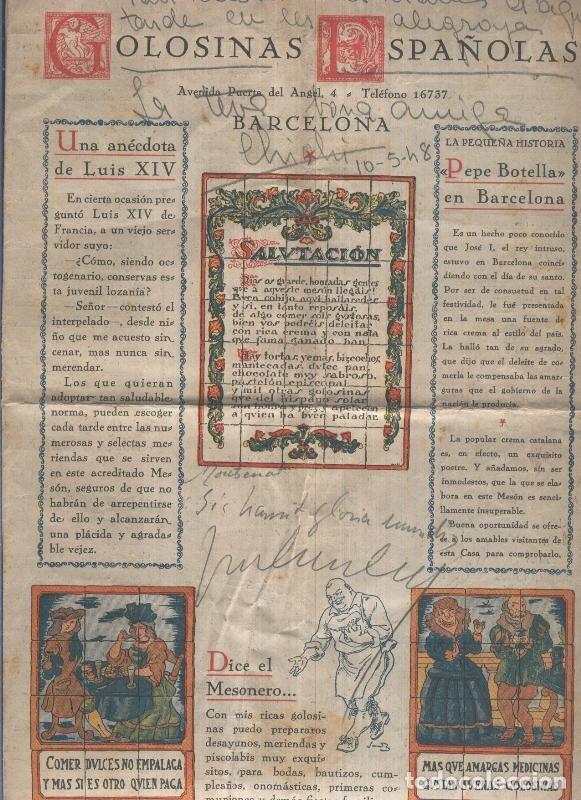 tarde en les alegroya
GOLOSINAS ESPAÑOLAS
Avenida Puerta del Angel, 4 - Teléfono 16737
BARCELONA
La
amiga
10-5-48
Una anécdota
de Luis XIV
En cierta ocasión pre-
guntó Luis XIV de
Francia, a un viejo ser-
vidor suyo:
—¿Cómo, siendo oc-
togenario, conservas es-
ta juvenil lozanía?
—Señor— contestó el
interpelado—, desde ni-
ño que me acuesto sin
cenar, mas nunca sin
merendar.
Los que quieran
adoptar tan saludable
norma, pueden escoger
cada tarde entre las nu-
merosas y selectas me-
riendas que se sirven
en este acreditado Me-
són, seguros de que no
habrán de arrepentirse
de ello y alcanzarán
una plácida y agrada-
ble vejez.
SALVTACIÓN
Dios os guarde, honradas gentes
que a aqueste mesón llegáis!
Buen cobijo aquí hallaredes
y si, en tanto reposáis,
de algo comer sois gustosas,
bien vos podréis deleitar
con rica crema y con nata
que fama ganado han.
Hay tortas, yemas, bizcochos,
mantecadas, dulce pan,
chocolate muy sabroso,
pastelón episcopal
y mil otras golosinas
que del hispano solar
dan honra y prez y apetencia
a quien ha buen paladar.
LA PEQUEÑA HISTORIA
«Pepe Botella»
en Barcelona
Es un hecho poco conocido
que José I, el rey intruso,
estuvo en Barcelona coinci-
diendo con el día de su santo.
Por ser de consuetud en tal
festividad, le fué presentada
en la mesa una fuente de
rica crema al estilo del país.
La halló tan de su agrado,
que dijo que el deleite de co-
merla le compensaba las amar-
guras que el gobierno de la
nación le producía.
La popular crema catalana
es, en efecto, un exquisito
postre. Y añadamos, sin ser
inmodestos, que la que se ela-
bora en este Mesón es senci-
llamente insuperable.
Buena oportunidad se ofre-
a los amables visitantes de
esta Casa para comprobarlo.
Sic transit gloria mundi
Dice el
Mesonero...
Con mis ricas golosi-
nas puedo prepararos
desayunos, meriendas y
piscolabis muy exqui-
sitos, para bodas, bautizos, cum-
pleaños, onomásticas, primeras co-
muniones y demás
COMER DVLCES NO EMPALAGA
Y MAS SI ES OTRO QVIEN PAGA
MAS QVE AMARGAS MEDICINAS
GOLOSINAS
todocoleccion